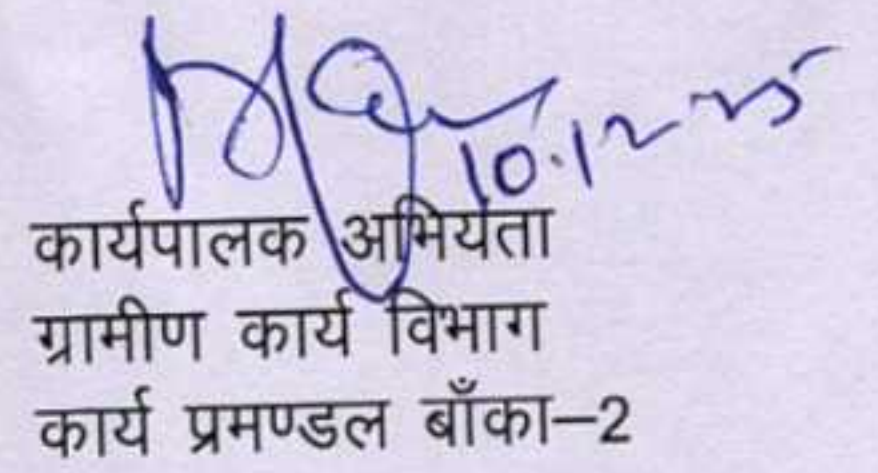 10.12.25
कार्यपालक अभियंता
ग्रामीण कार्य विभाग
कार्य प्रमण्डल बाँका–2